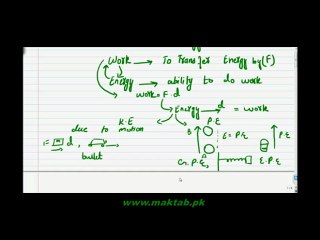 Work → To Transfer Energy by (F)
Energy → ability to do work
work = F . d
Energy → d = work
K.E P.E
due to motion
B E = P.E P.E
d,
bullet
Gr. P.E E.P.E
www.maktab.pk